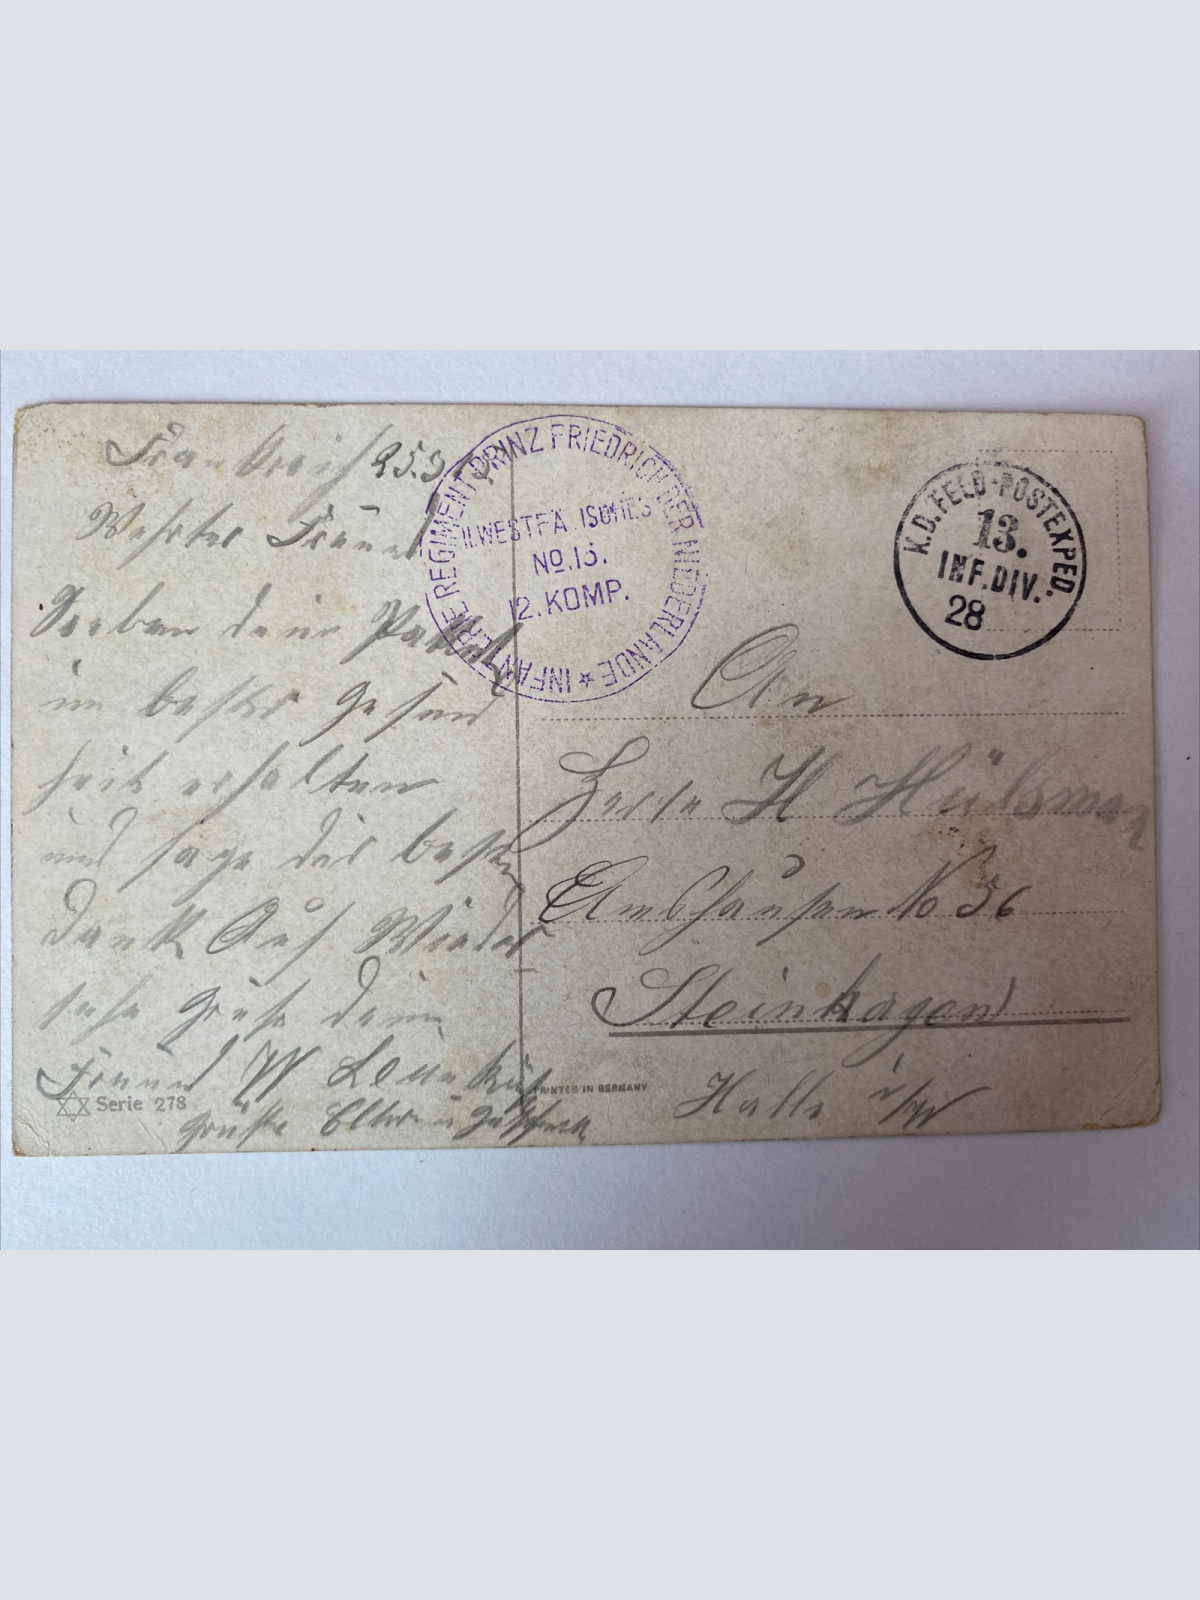 Frankreich 25.3
Werter Freund
Soeben dein Paket
in bester Gesund
heit erhalten
und sage dir besten
Dank Auf Wieder
sehn Grüße dein
Freund W
Grüße Eltern u
Serie 278
INFANTERIE REGIMENT PRINZ FRIEDRICH DER NIEDERLANDE
II. WESTFÄLISCHES
No. 15.
12. KOMP.
K.D. FELD-POSTEXPED.
13.
INF.DIV.
28
An
Herrn H Hülsmann
Amshausen No 56
Steinhagen
Halle i/W
PRINTED IN GERMANY